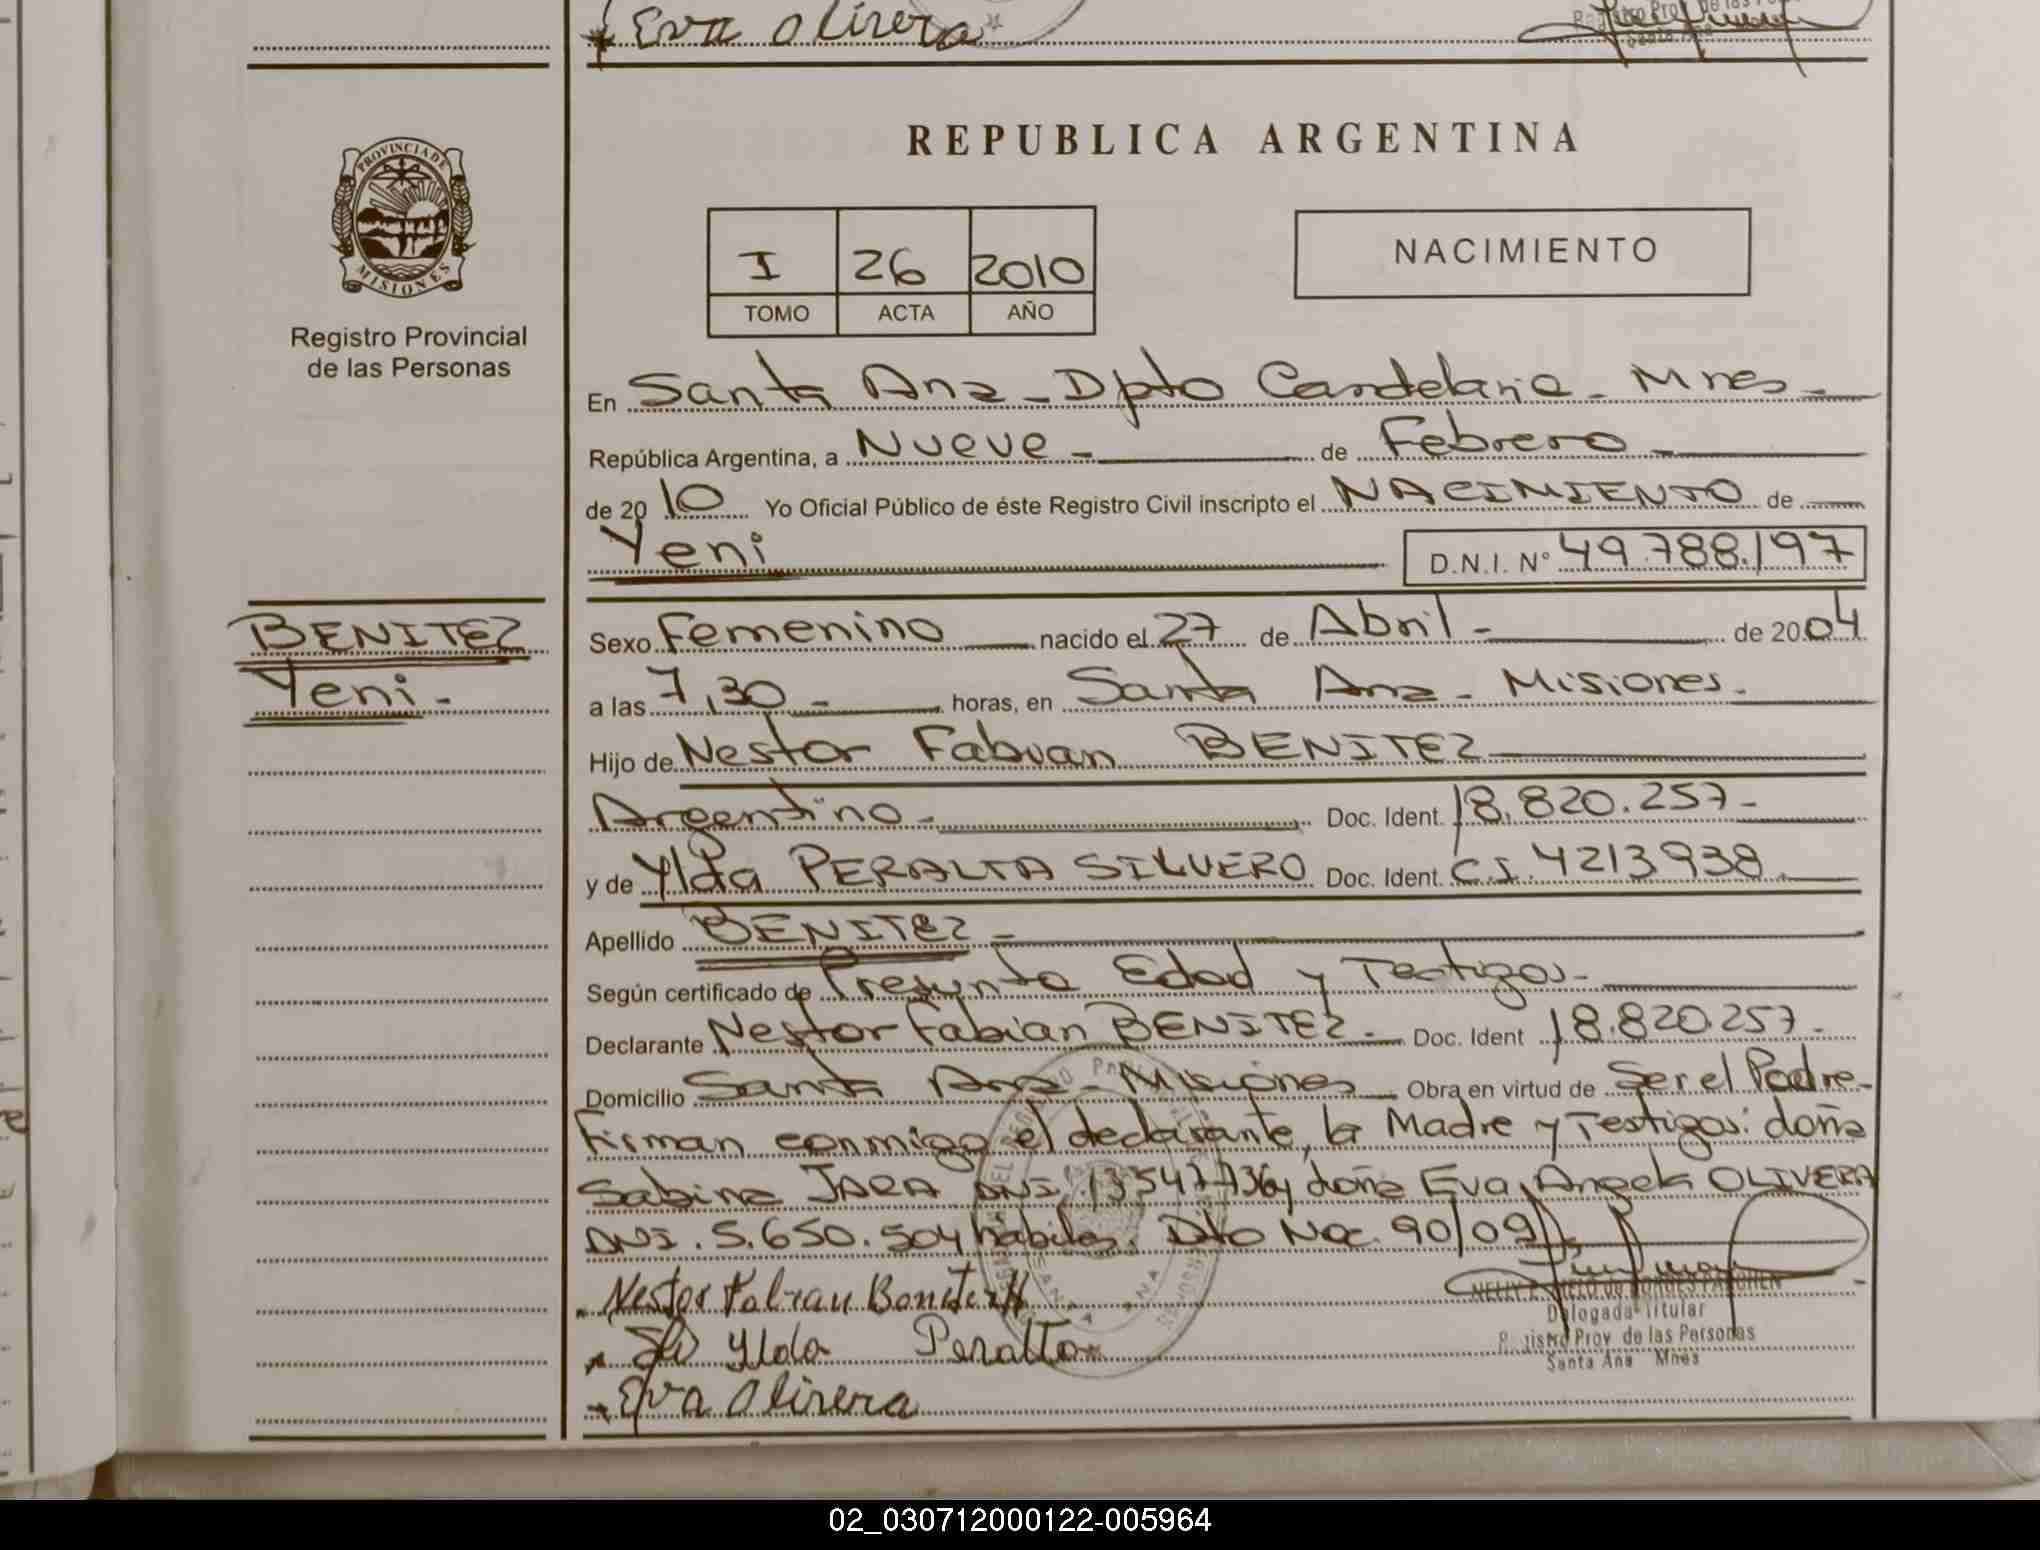 Eva Olivera
Registro Prov. de las Personas
Santa Ana
PROVINCIA DE
MISIONES
Registro Provincial
de las Personas
REPUBLICA ARGENTINA
I 26 2010
TOMO ACTA AÑO
NACIMIENTO
En Santa Ana - Dpto Candelaria - Mnes -
República Argentina, a Nueve - de Febrero -
de 2010 Yo Oficial Público de éste Registro Civil inscripto el NACIMIENTO de
Yeni
D.N.I. N° 49.788.197
BENITEZ
Yeni -
Sexo Femenino nacido el 27 de Abril - de 2004
a las 7,30 - horas, en Santa Ana - Misiones -
Hijo de Nestor Fabian BENITEZ
Argentino - Doc. Ident. 18.820.257 -
y de Ylda PERALTA SILVERO Doc. Ident. C.I. 4213938
Apellido BENITEZ -
Según certificado de Presunta Edad y Testigos -
Declarante Nestor Fabian BENITEZ - Doc. Ident 18.820.257 -
Domicilio Santa Ana - Misiones Obra en virtud de Ser el Padre -
Firman conmigo el declarante, la Madre y Testigos: doña
Sabina JARA DNI. 13547736 y doña Eva Angela OLIVERA
DNI. 5.650.504 habiles. Dto Nac. 90/09
Nestor Fabian Benitez
Ylda Peralta
Eva Olivera
Delegada Titular
Registro Prov. de las Personas
Santa Ana Mnes
02_030712000122-005964